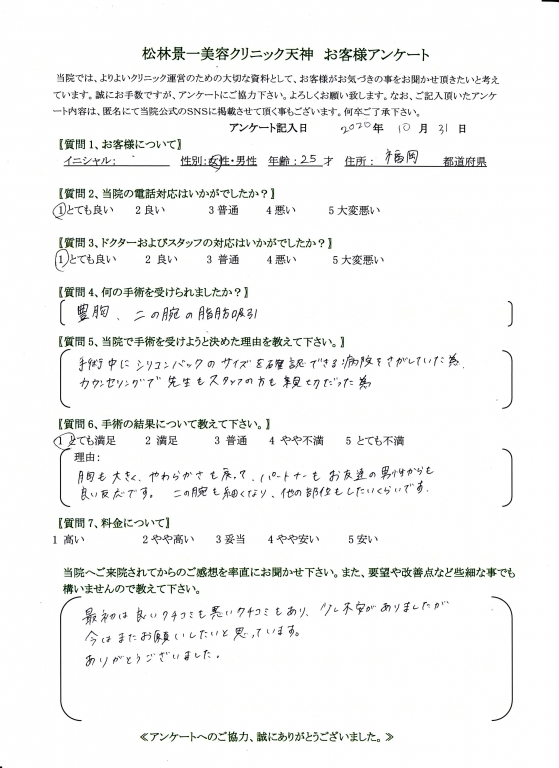 松林景一美容クリニック天神　お客様アンケート
当院では、よりよいクリニック運営のための大切な資料として、お客様がお気づきの事をお聞かせ頂きたいと考え
ています。誠にお手数ですが、アンケートにご協力下さい。よろしくお願い致します。なお、ご記入頂いたアンケ
ート内容は、匿名にて当院公式のSNSに掲載させて頂く事もございます。何卒ご了承下さい。
アンケート記入日　2020年 10 月 31 日
〖質問1、お客様について〗
イニシャル：　性別：女性・男性　年齢：25才　住所：福岡　都道府県
〖質問2、当院の電話対応はいかがでしたか？〗
1とても良い　2 良い　3 普通　4 悪い　5 大変悪い
〖質問3、ドクターおよびスタッフの対応はいかがでしたか？〗
1とても良い　2 良い　3 普通　4 悪い　5 大変悪い
〖質問4、何の手術を受けられましたか？〗
豊胸、二の腕の脂肪吸引
〖質問5、当院で手術を受けようと決めた理由を教えて下さい。〗
手術中にシリコンバックのサイズを確認できる病院をさがしていた為、
カウンセリングで先生もスタッフの方も親切だった為
〖質問6、手術の結果について教えて下さい。〗
1 とても満足　2 満足　3 普通　4 やや不満　5 とても不満
理由：
胸も大きく、やわらかさも戻って、パートナーもお友達の男性からも
良い反応です。二の腕も細くなり、他の部位もしたいくらいです。
〖質問7、料金について〗
1 高い　2 やや高い　3 妥当　4 やや安い　5 安い
当院へご来院されてからのご感想を率直にお聞かせ下さい。また、要望や改善点など些細な事でも
構いませんので教えて下さい。
最初は良いクチコミも悪いクチコミもあり、少し不安がありましたが
今はまたお願いしたいと思っています。
ありがとうございました。
≪アンケートへのご協力、誠にありがとうございました。≫